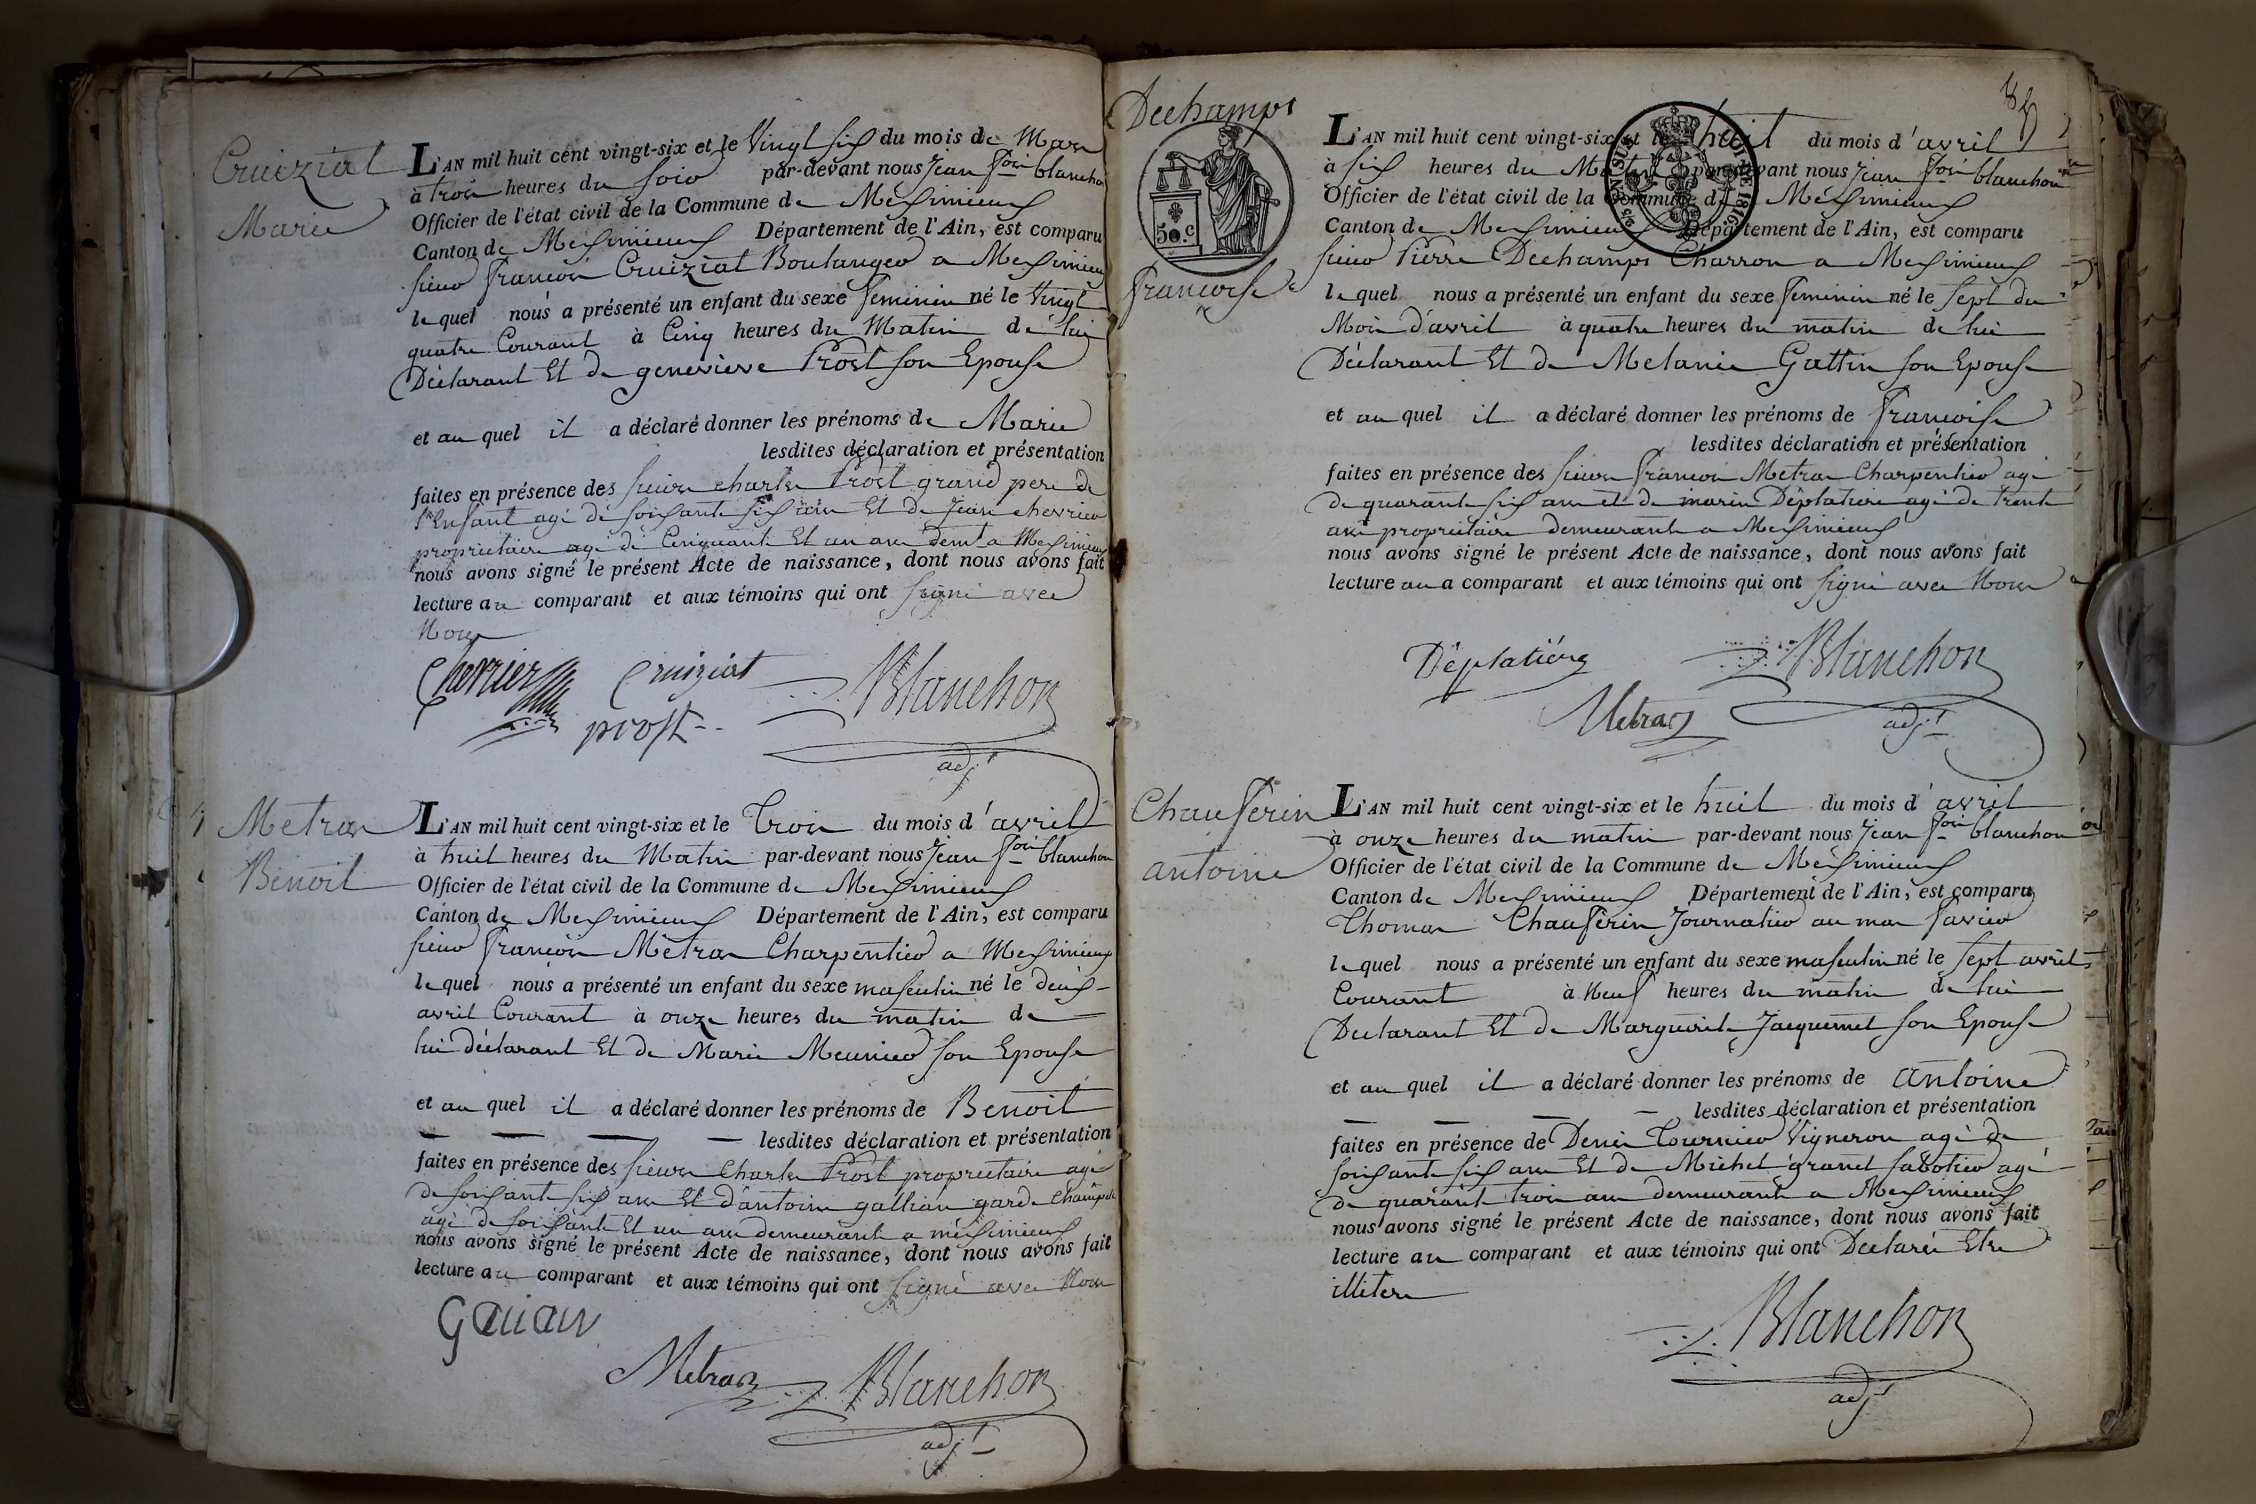 Cruiziat
Marie
L'AN mil huit cent vingt-six et le Vingt six du mois de Mars
à trois heures du soir par-devant nous Jean f.ois blanchon
Officier de l'état civil de la Commune de Meximieux
Canton de Meximieux Département de l'Ain, est comparu
sieur francois Cruiziat Boulanger a Meximieux
lequel nous a présenté un enfant du sexe feminin né le Vingt
quatre Courant à Cinq heures du Matin de lui
Déclarant Et de genevieve Prost son Epouse
et au quel il a déclaré donner les prénoms de Marie
lesdites déclaration et présentation
faites en présence des sieurs charles Prost grand pere de
l'Enfant agé de soixante six ans Et de Jean chevrier
proprietaire agé de Cinquante Et un ans dem.t a Meximieux
nous avons signé le présent Acte de naissance, dont nous avons fait
lecture au comparant et aux témoins qui ont signé avec
Nous
Chevrier Cruiziat Blanchon
prost
adj.t
Metras
Benoit
L'AN mil huit cent vingt-six et le Trois du mois d'avril
à huit heures du Matin par-devant nous Jean f.ois blanchon
Officier de l'état civil de la Commune de Meximieux
Canton de Meximieux Département de l'Ain, est comparu
sieur francois Métras Charpentier a Meximieux
lequel nous a présenté un enfant du sexe masculin né le deux
avril Courant à onze heures du matin de
lui déclarant Et de Marie Meunier son Epouse
et au quel il a déclaré donner les prénoms de Benoit
lesdites déclaration et présentation
faites en présence des sieurs Charles Prost proprietaire agé
de soixante six ans Et d'antoine gallian garde Champetre
agé de soixante Et un ans demeurants a méximieux
nous avons signé le présent Acte de naissance, dont nous avons fait
lecture au comparant et aux témoins qui ont signé avec Nous
Metras Blanchon
adj.t
Dechamps
50.c
francoise
L'AN mil huit cent vingt-six et le huit du mois d'avril
à six heures du Matin par-devant nous Jean f.ois blanchon
Officier de l'état civil de la Commune de Meximieux
Canton de Meximieux Département de l'Ain, est comparu
sieur Pierre Dechamps Charron a Meximieux
lequel nous a présenté un enfant du sexe feminin né le sept du
Mois d'avril à quatre heures du matin de lui
Déclarant Et de Melanie Gattin son Epouse
et au quel il a déclaré donner les prénoms de francoise
lesdites déclaration et présentation
faites en présence des sieurs francois Metras Charpentier agé
de quarante six ans et de marin Déplatiere agé de trente
ans proprietaire demeurants a Meximieux
nous avons signé le présent Acte de naissance, dont nous avons fait
lecture au a comparant et aux témoins qui ont signé avec Nous
Blanchon
Metras
adj.t
Chauferin
antoine
L'AN mil huit cent vingt-six et le huit du mois d'avril
à onze heures du matin par-devant nous Jean f.ois blanchon
Officier de l'état civil de la Commune de Meximieux
Canton de Meximieux Département de l'Ain, est comparu
Thomas Chauferin Journalier au mas
lequel nous a présenté un enfant du sexe masculin né le sept avril
Courant à Neuf heures du matin de lui
Declarant Et de Marguerite Jacquemet son Epouse
et au quel il a déclaré donner les prénoms de antoine
lesdites déclaration et présentation
faites en présence de Denis Tournier Vigneron agé de
soixante six ans Et de Michel granet sabotier agé
de quarante trois ans demeurants a Meximieux
nous avons signé le présent Acte de naissance, dont nous avons fait
lecture au comparant et aux témoins qui ont Declarés Etre
illiteres
Blanchon
adj.t